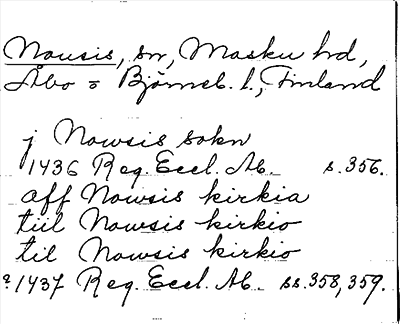 Nousis, sn, Masku hd,
Åbo o Björneb. l., Finland
j Nowsis sokn
1436 Reg. Eccl. Ab. s. 356.
aff Nowsis kirkia
tiil Nowsis kirkio
til Nowsis kirkio
1437 Reg. Eccl. Ab. ss. 358, 359.